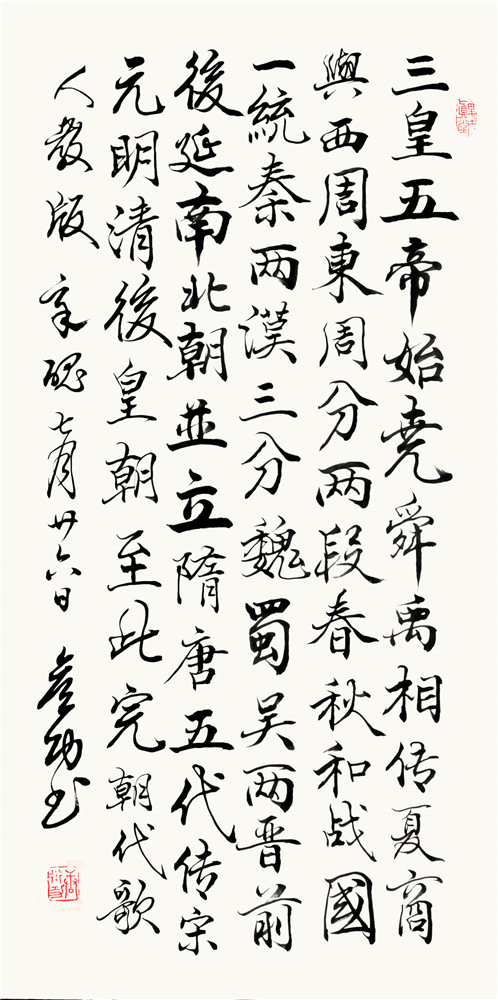 三皇五帝始尭舜禹相传夏商
與西周東周分两段春秋和战國
一統秦两漢三分魏蜀吴两晋前
後延南北朝並立隋唐五代传宋
元明清後皇朝至此完朝代歌
人教版 七月廿六日